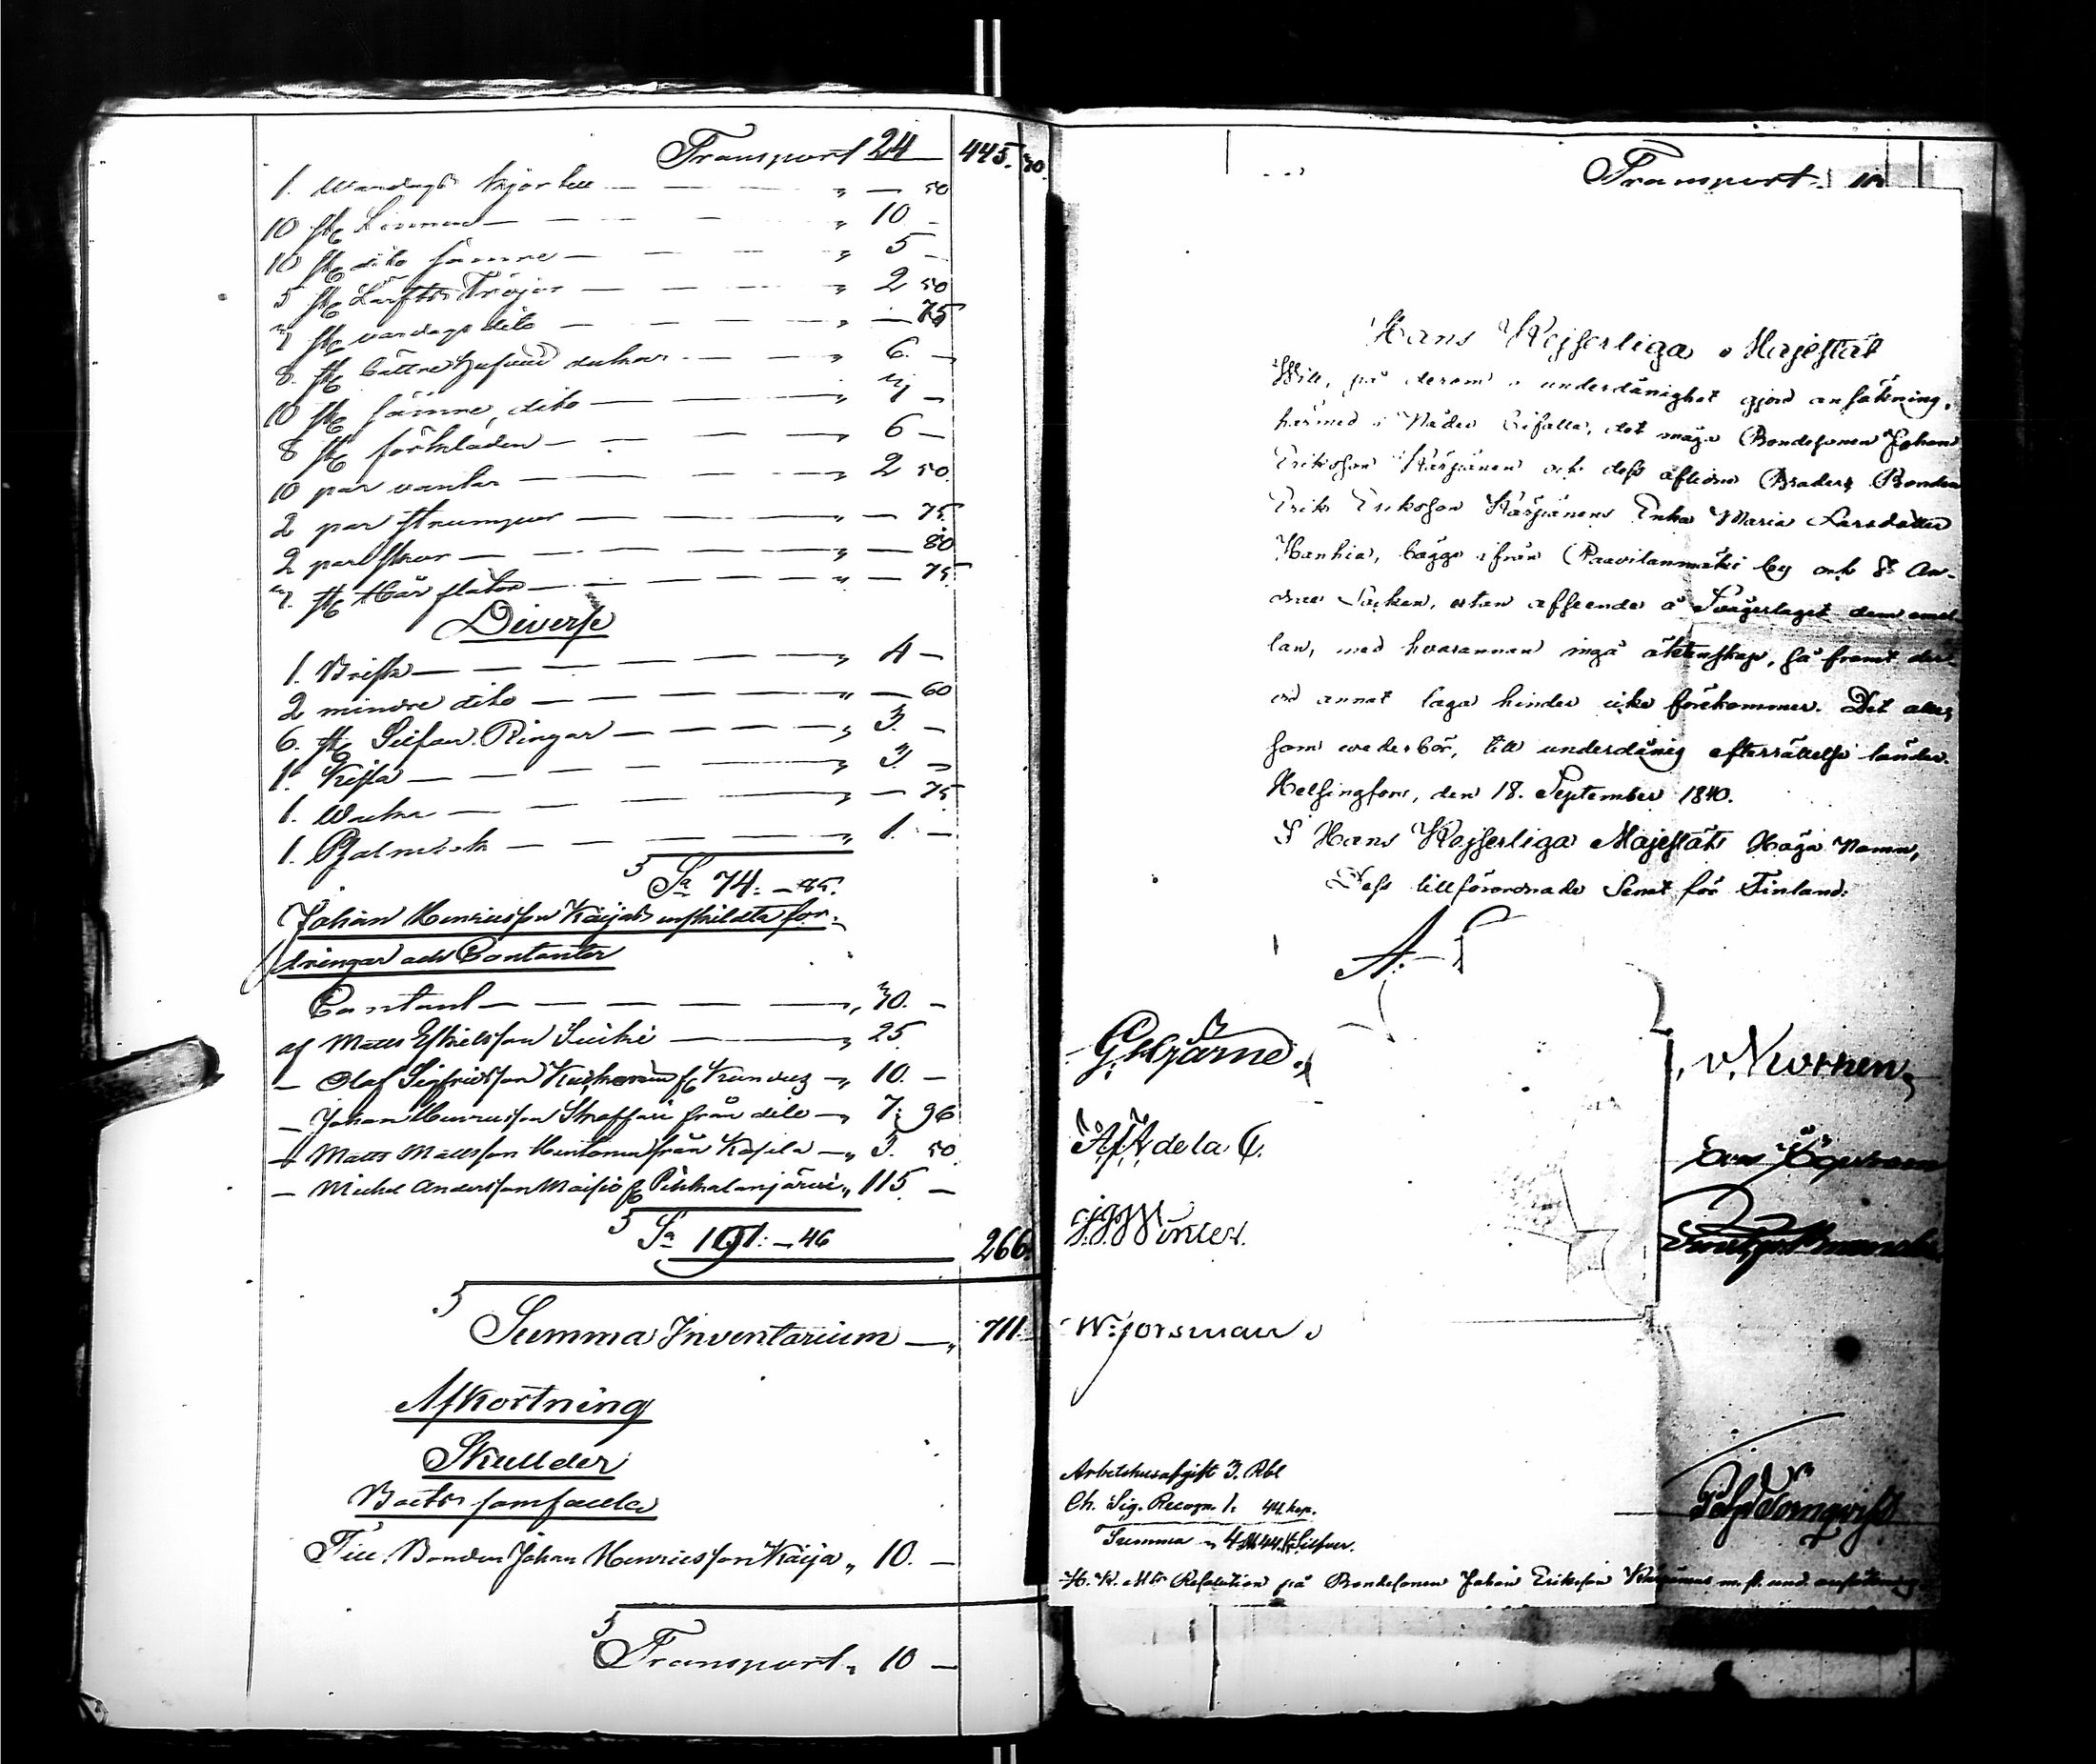 Transport 24 — 445. 30.
1. Wardags Kjortell — — — " — 50
10 st Linnen — — — — " 10 —
10 st dito sämre — — — " 5 —
5 st Lärfts Tröjor — — — " 2 50
st vardags dito — — — " — 75
8. st bättre hufvud dukar — — " 6. —
10 st sämre, dito — — — " 4 —
8 st förkläden — — — " 6 —
10 par vantar — — — " 2 50.
2 par strumpor — — — " — 75.
2 par skor — — — — " — 80
st Hår flätor — — — " — 75
Diverse
1. — — — — " 4 —
2 mindre dito — — — " — 60
6. st Silfver Ringar — — — " 3. —
1. Kista — — — — " 3. —
1. — — — " — 75
1. Psalmbok — — — " 1. —
Sa 74: — 85.
Johan Henricsson Käijas enskildta for-
dringar och Contanter
Contant — — — — " 30. —
af Matts Eskilsson — — " 25.
— Olaf Sigfridsson — " 10. —
— Johan Henricsson från dito — " 7: 96
— Matts Mattsson från — " 3. 50.
— Michel Andersson " 115. —
Sa 191: — 46
266.
Summa Inventarium — " 711.
Afkortning
Skullder
Boets samfälda
Till Bonden Johan Henricsson Käija " 10. —
Transport " 10 —
Transport " 10
Hans Kejserliga Majestät
Will, på derom i underdånighet gjord ansökning,
härmed i Nåder bifalla, det måga Bondesonen Johan
Eriksson Kärpänen och dess aflidne Broders Bonden
Erik Eriksson Kärpänens Enka Maria Larsdotter
Hanhia, bägge ifrån Paavilanmäki by och St An-
dree Socken, utan afseende å Svågerlaget dem emel-
lan, med hvarannan ingå äktenskap, så framt der-
vid annat laga hinder icke förekommer. Det alle,
som wederbör, till underdånig efterrättelse länder.
Helsingfors, den 18. September 1840.
I Hans Kejserliga Majestäts Höga Namn,
Dess tillförordnade Senat för Finland:
G. Hjärne.
de la C.
Winter.
Arbetshusafgift 3. Rbl
Ch. Sig. Recogn. 1. 44. kop.
Summa " 4 R 44. K Silfver.
H. K. Mts Resolution på Bondesonen Johan Eriksson Kärpänens m. fl. und. ansökning